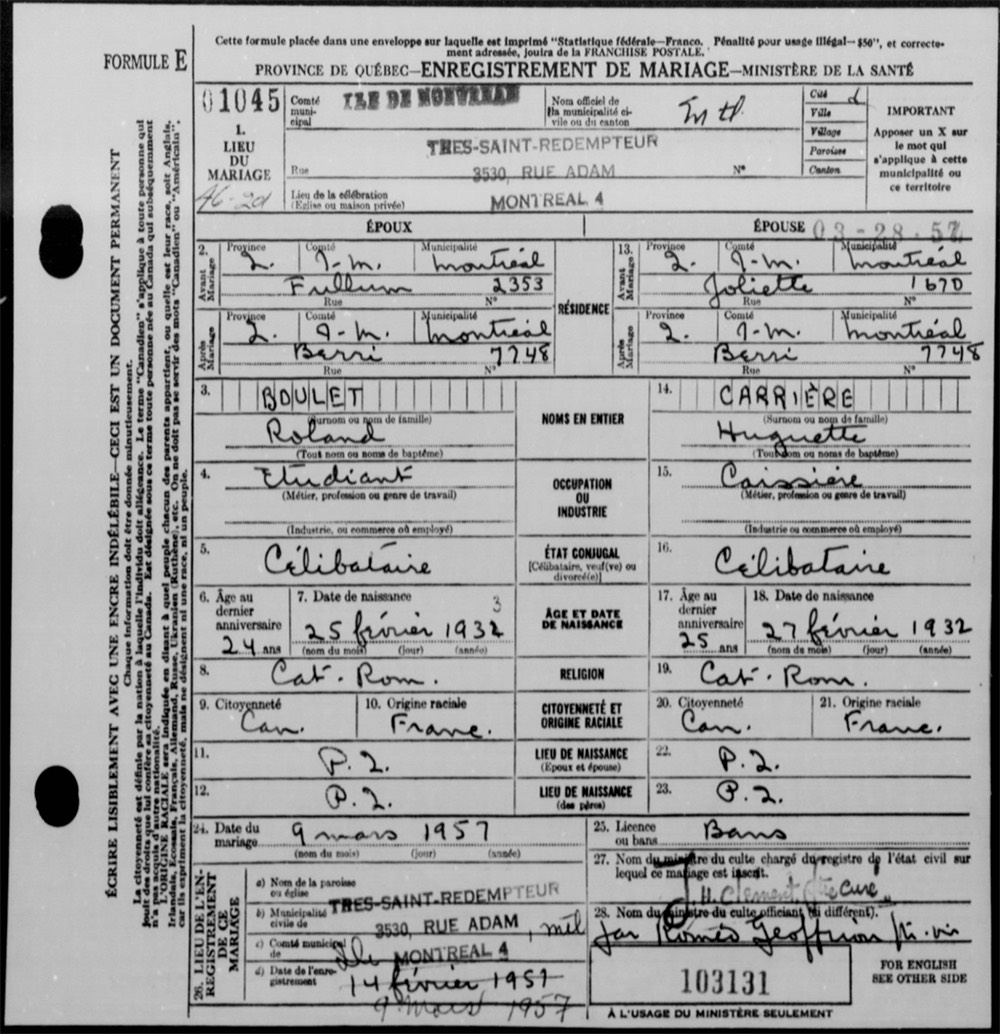 Cette formule placée dans une enveloppe sur laquelle est imprimé "Statistique fédérale—Franco. Pénalité pour usage illégal—$50", et correcte-
ment adressée, jouira de la FRANCHISE POSTALE.
FORMULE E
PROVINCE DE QUÉBEC—ENREGISTREMENT DE MARIAGE—MINISTÈRE DE LA SANTÉ
ÉCRIRE LISIBLEMENT AVEC UNE ENCRE INDÉLÉBILE—CECI EST UN DOCUMENT PERMANENT
Chaque information doit être donnée minutieusement.
La citoyenneté est définie par la nation à laquelle l'individu doit allégeance. Le terme "Canadien" s'applique à toute personne qui
jouit des droits que lui confère sa citoyenneté au Canada. Est désignée sous ce terme toute personne née au Canada qui subséquemment
n'a pas acquis d'autre nationalité.
L'ORIGINE RACIALE sera indiquée en disant à quel peuple chacun des parents appartient, ou quelle est leur race, soit Anglais,
Irlandais, Ecossais, Français, Allemand, Russe, Ukranien (Ruthène), etc. On ne doit pas se servir des mots "Canadien" ou "Américain",
car ils expriment la citoyenneté, mais ne désignent ni une race, ni un peuple.
01045
1.
LIEU
DU
MARIAGE
46-2d
Comté
muni-
cipal
ILE DE MONTREAL
Nom officiel de
la municipalité ci-
vile ou du canton
Mtl
Cité
Ville
Village
Paroisse
Canton
IMPORTANT
Apposer un X sur
le mot qui
s'applique à cette
municipalité ou
ce territoire
TRES-SAINT-REDEMPTEUR
Rue 3530, RUE ADAM N°
Lieu de la célébration
(Eglise ou maison privée)
MONTREAL 4
ÉPOUX
ÉPOUSE 03-28-57
2. Avant Mariage
Province Comté Municipalité
Q. I-M. Montréal
Fullum 2353
Rue N°
RÉSIDENCE
13. Avant Mariage
Province Comté Municipalité
Q. I-M. Montréal
Joliette 1670
Rue N°
Après Mariage
Province Comté Municipalité
Q. I-M. Montréal
Berri 7748
Rue N°
Après Mariage
Province Comté Municipalité
Q. I-M. Montréal
Berri 7748
Rue N°
3. BOULET
(Surnom ou nom de famille)
Roland
(Tout nom ou noms de baptême)
NOMS EN ENTIER
14. CARRIÈRE
(Surnom ou nom de famille)
Huguette
(Tout nom ou noms de baptême)
4. Etudiant
(Métier, profession ou genre de travail)
(Industrie, ou commerce où employé)
OCCUPATION
OU
INDUSTRIE
15. Caissière
(Métier, profession ou genre de travail)
(Industrie ou commerce où employé)
5. Célibataire
ÉTAT CONJUGAL
[Célibataire, veuf(ve) ou
divorcé(e)]
16. Célibataire
6. Âge au
dernier
anniversaire
24 ans
7. Date de naissance
3
25 février 1932
(nom du mois) (jour) (année)
ÂGE ET DATE
DE NAISSANCE
17. Âge au
dernier
anniversaire
25 ans
18. Date de naissance
27 février 1932
(nom du mois) (jour) (année)
8. Cat. Rom.
RELIGION
19. Cat. Rom.
9. Citoyenneté
Can.
10. Origine raciale
Franc.
CITOYENNETÉ ET
ORIGINE RACIALE
20. Citoyenneté
Can.
21. Origine raciale
Franc.
11. P.Q.
LIEU DE NAISSANCE
(Epoux et épouse)
22. P.Q.
12. P.Q.
LIEU DE NAISSANCE
(des pères)
23. P.Q.
24. Date du
mariage 9 mars 1957
(nom du mois) (jour) (année)
25. Licence
ou bans Bans
26. LIEU DE L'EN-
REGISTREMENT
DE CE
MARIAGE
a) Nom de la paroisse
ou église
TRES-SAINT-REDEMPTEUR
b) Municipalité
civile de
3530, RUE ADAM, Mtl
c) Comté municipal
de
Ile MONTREAL 4
d) Date de l'enre-
gistrement
14 février 1957
9 Mars 1957
27. Nom du ministre du culte chargé du registre de l'état civil sur
lequel ce mariage est inscrit.
J. H. Clement Ptre Curé
28. Nom du ministre du culte officiant (si différent).
par Roméo Geoffrion ptr. vic
103131
FOR ENGLISH
SEE OTHER SIDE
À L'USAGE DU MINISTÈRE SEULEMENT